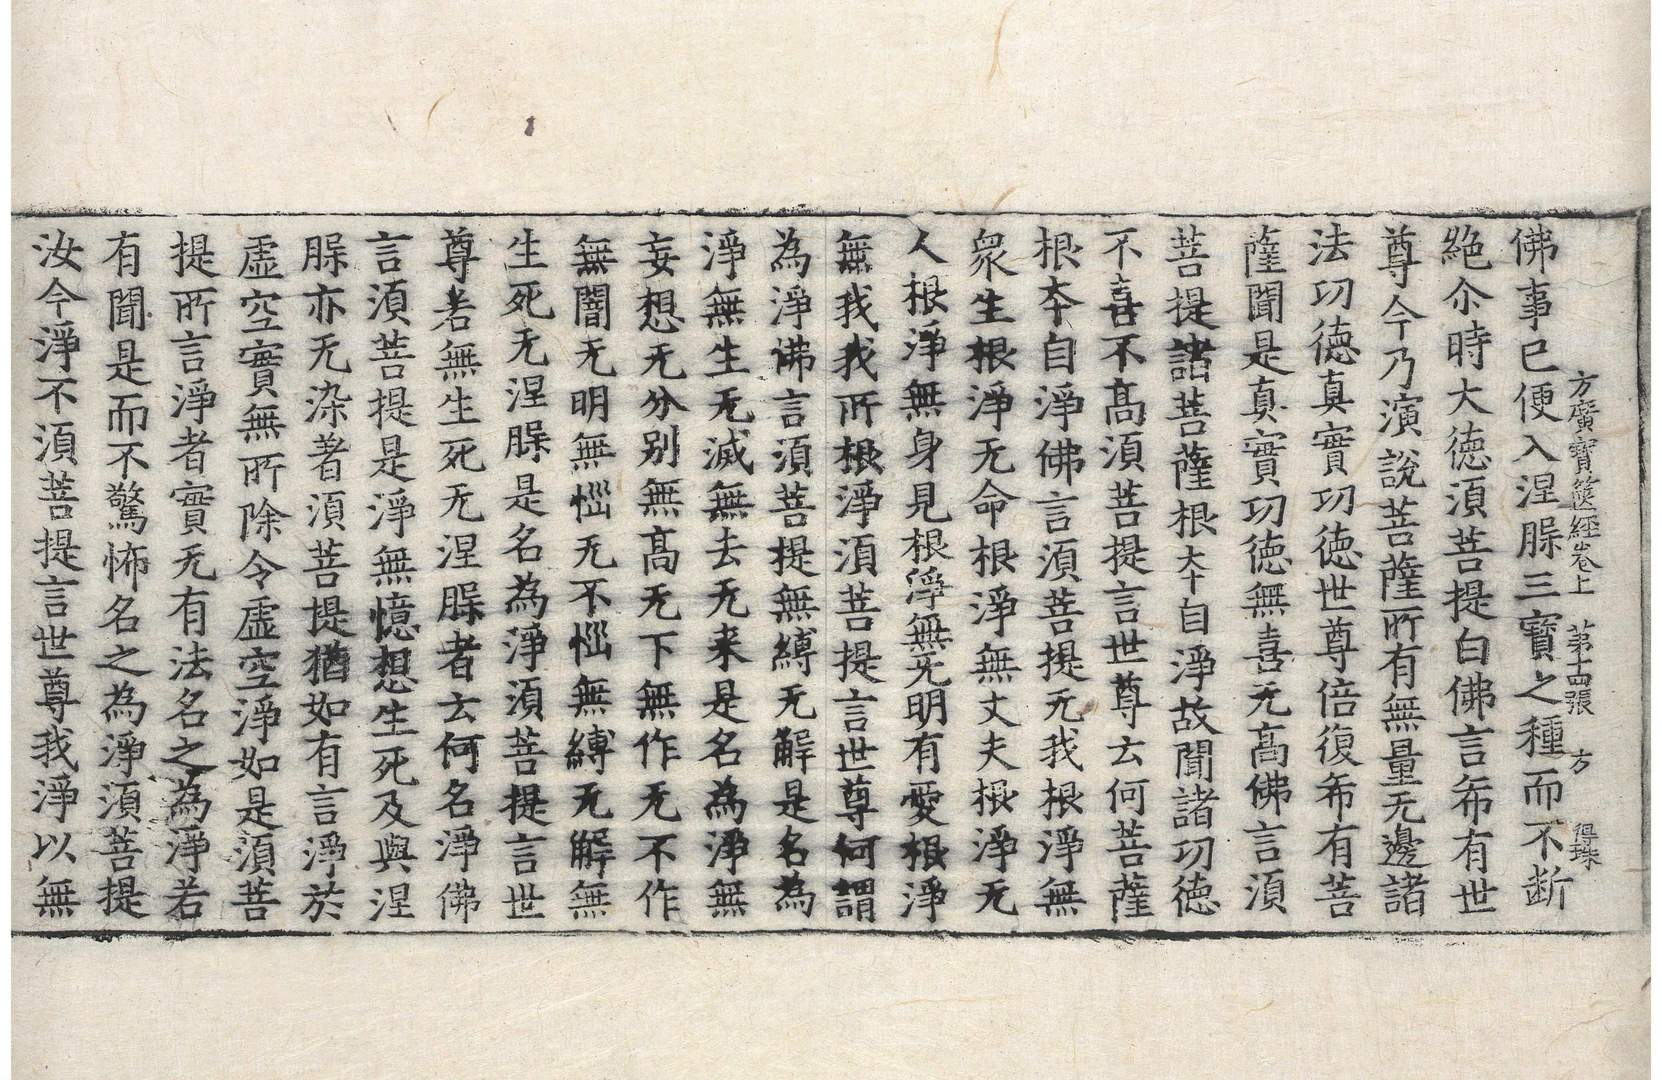 方廣寶篋經卷上 第十四張 方 得珠
佛事已便入涅脲三寶之種而不断
絕尒時大德湏菩提白佛言希有世
尊今乃演說菩薩所有無量无邊諸
法功德真實功德世尊倍復希有菩
薩聞是真實功德無喜无高佛言湏
菩提諸菩薩根大十自淨故聞諸功德
不喜不高湏菩提言世尊云何菩薩
根夲自淨佛言湏菩提无我根淨無
衆生根淨无命根淨無丈夫根淨无
人根淨無身見根淨無无明有愛根淨
無我我所根淨湏菩提言世尊何謂
為淨佛言湏菩提無縛无解是名為
淨無生无滅無去无来是名為淨無
妄想无分别無高无下無作无不作
無闇无明無惱无不惱無縛无解無
生死无涅脲是名為淨湏菩提言世
尊若無生死无涅脲者云何名淨佛
言湏菩提是淨無憶想生死及與涅
脲亦无染著湏菩提猶如有言淨於
虛空實無所除令虛空淨如是湏菩
提所言淨者實无有法名之為淨若
有聞是而不驚怖名之為淨湏菩提
汝今淨不湏菩提言世尊我淨以無